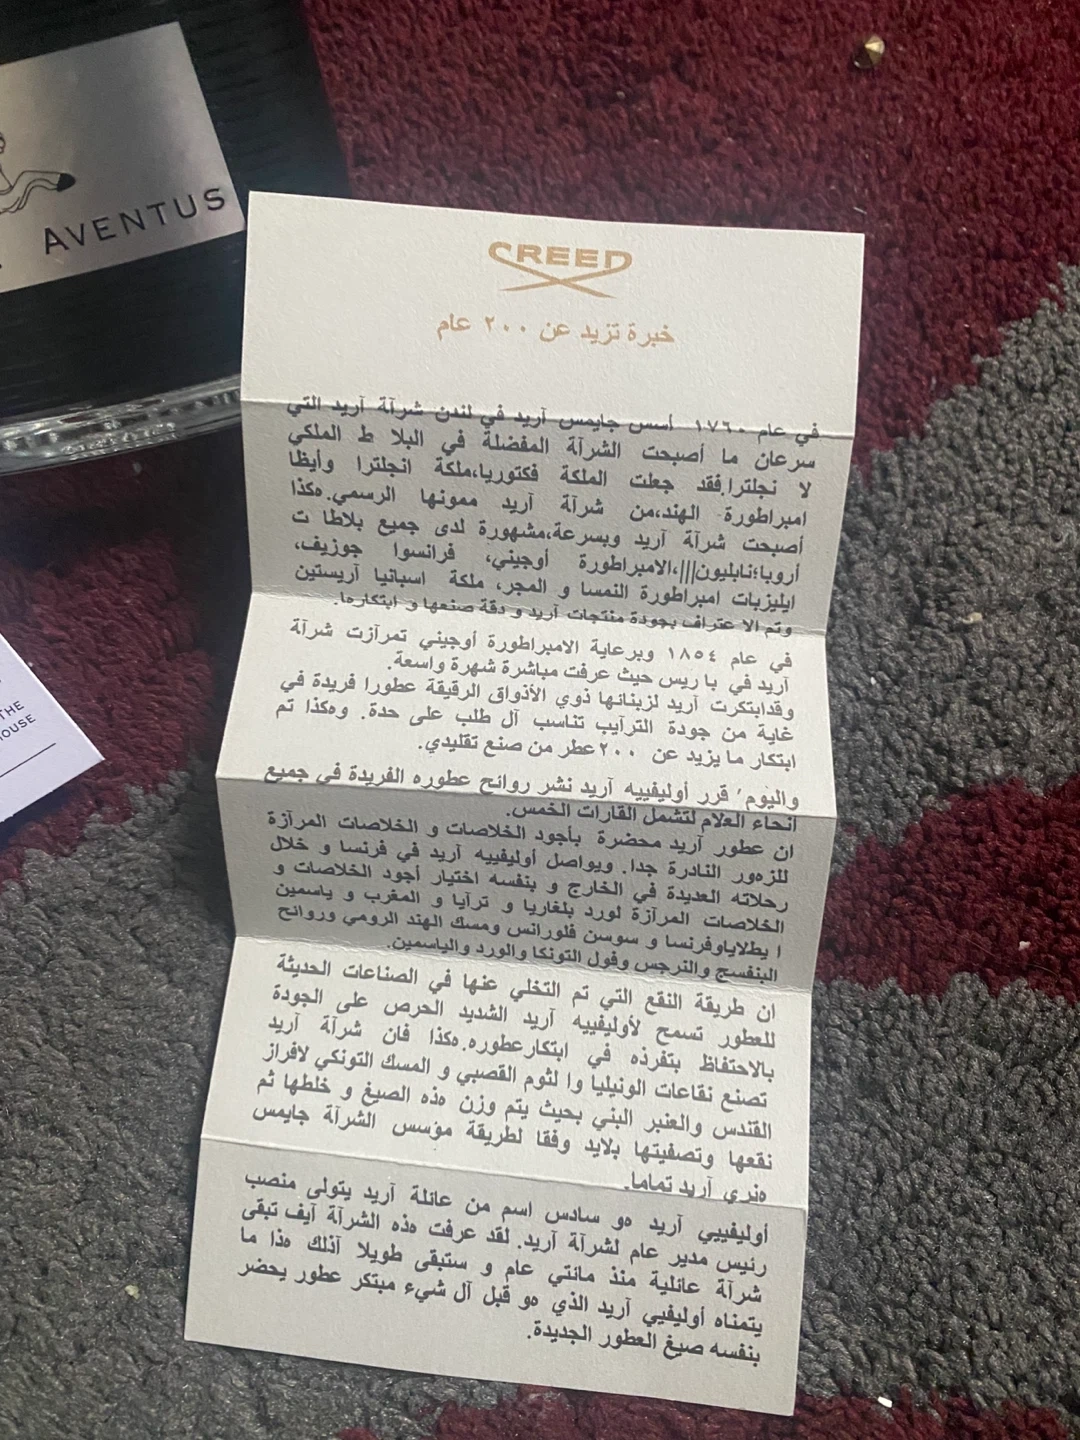 AVENTUS
THE
HOUSE
CREED
خبرة تزيد عن ٢٠٠ عام
في عام ١٧٦٠ أسس جايمس آريد في لندن شرآة آريد التي
سرعان ما أصبحت الشرآة المفضلة في البلا ط الملكي
لا نجلترا.فقد جعلت الملكة فكتوريا،ملكة انجلترا وأيظا
امبراطورة الهند،من شرآة آريد ممونها الرسمي.ﻩكذا
أصبحت شرآة آريد وبسرعة،مشهورة لدى جميع بلاطا ت
أروبا؛نابليون|||،الامبراطورة أوجيني، فرانسوا جوزيف،
ايليزبات امبراطورة النمسا و المجر، ملكة اسبانيا آريستين
وتم الا عتراف بجودة منتجات آريد و دقة صنعها و ابتكارﻩا.
في عام ١٨٥٤ وبرعاية الامبراطورة أوجيني تمرآزت شرآة
آريد في با ريس حيث عرفت مباشرة شهرة واسعة.
وقدابتكرت آريد لزبنائها ذوي الأذواق الرقيقة عطورا فريدة في
غاية من جودة الترآيب تناسب آل طلب على حدة. وﻩكذا تم
ابتكار ما يزيد عن ٢٠٠عطر من صنع تقليدي.
واليوم٬ قرر أوليفييه آريد نشر روائح عطوره الفريدة في جميع
انحاء العلام لتشمل القارات الخمس.
ان عطور آريد محضرة بأجود الخلاصات و الخلاصات المرآزة
للزﻩور النادرة جدا. ويواصل أوليفييه آريد في فرنسا و خلال
رحلاته العديدة في الخارج و بنفسه اختيار أجود الخلاصات و
الخلاصات المرآزة لورد بلغاريا و ترآيا و المغرب و ياسمين
ا يطلاياوفرنسا و سوسن فلورانس ومسك الهند الرومي وروائح
البنفسج والنرجس وفول التونكا والورد والياسمين.
ان طريقة النقع التي تم التخلي عنها في الصناعات الحديثة
للعطور تسمح لأوليفييه آريد الشديد الحرص على الجودة
بالاحتفاظ بتفرذه في ابتكارعطوره.ﻩكذا فان شرآة آريد
تصنع نقاعات الونيليا وا لثوم القصبي و المسك التونكي لافراز
القندس والعنبر البني بحيث يتم وزن ﻩذه الصيغ و خلطها ثم
نقعها وتصفيتها بلايد وفقا لطريقة مؤسس الشرآة جايمس
ﻩنري آريد تماما.
أوليفيي آريد ﻩو سادس اسم من عائلة آريد يتولى منصب
رئيس مدير عام لشرآة آريد. لقد عرفت ﻩذه الشرآة آيف تبقى
شرآة عائلية منذ مائتي عام و ستبقى طويلا آذلك ﻩذا ما
يتمناه أوليفيي آريد الذي ﻩو قبل آل شيء مبتكر عطور يحضر
بنفسه صيغ العطور الجديدة.